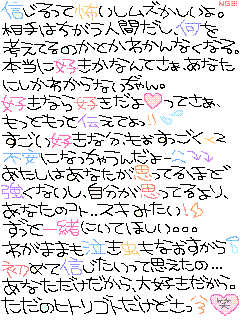 信じるって怖いしムズかしいよ。
相手はちがう人間だし、何を
考えてるのかとかわかんなくなる。
本当に好きかなんてさぁ、あなた
にしかわからないぢゃん。
好きなら好きだよ♡ってさぁ、
もっともっと伝えてょ!!
すごい好きなの、もぉすごく×2
不安になっちゃうんだょー
あたしはあなたが思ってるほど
強くないし、自分が思ってるより、
あなたのコト..スキみたい!
ずっと一緒にいてほしい。。。
わがままも泣き虫もなおすから
初めて信じたいって思えたの...
あなただけだから、大好きだから。
ただのヒトリゴトだけどもっ